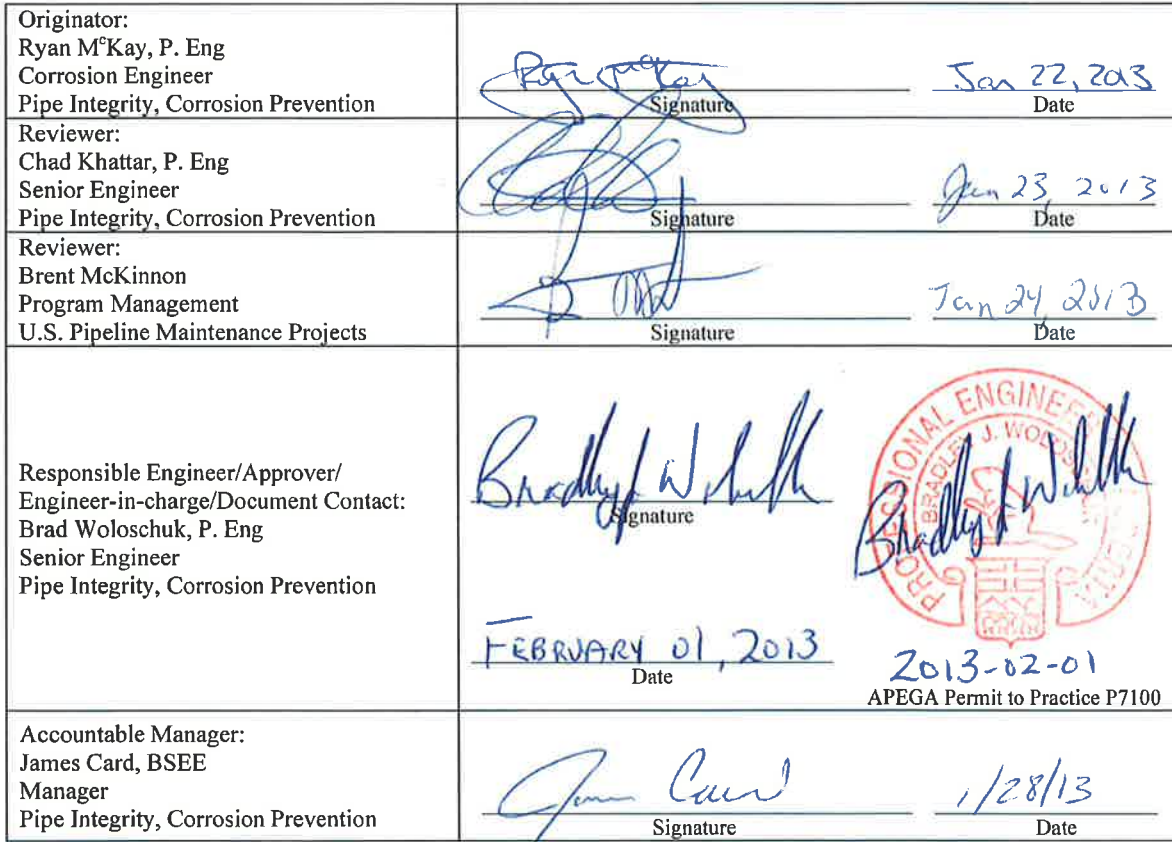 Originator:
Ryan McKay, P. Eng
Corrosion Engineer
Pipe Integrity, Corrosion Prevention
Jan 22, 2013
Signature
Date
Reviewer:
Chad Khattar, P. Eng
Senior Engineer
Pipe Integrity, Corrosion Prevention
Jan 23, 2013
Signature
Date
Reviewer:
Brent McKinnon
Program Management
U.S. Pipeline Maintenance Projects
Jan 24, 2013
Signature
Date
Responsible Engineer/Approver/
Engineer-in-charge/Document Contact:
Brad Woloschuk, P. Eng
Senior Engineer
Pipe Integrity, Corrosion Prevention
Signature
FEBRUARY 01, 2013
Date
BRADLEY J. WOLOS
2013-02-01
APEGA Permit to Practice P7100
Accountable Manager:
James Card, BSEE
Manager
Pipe Integrity, Corrosion Prevention
1/28/13
Signature
Date